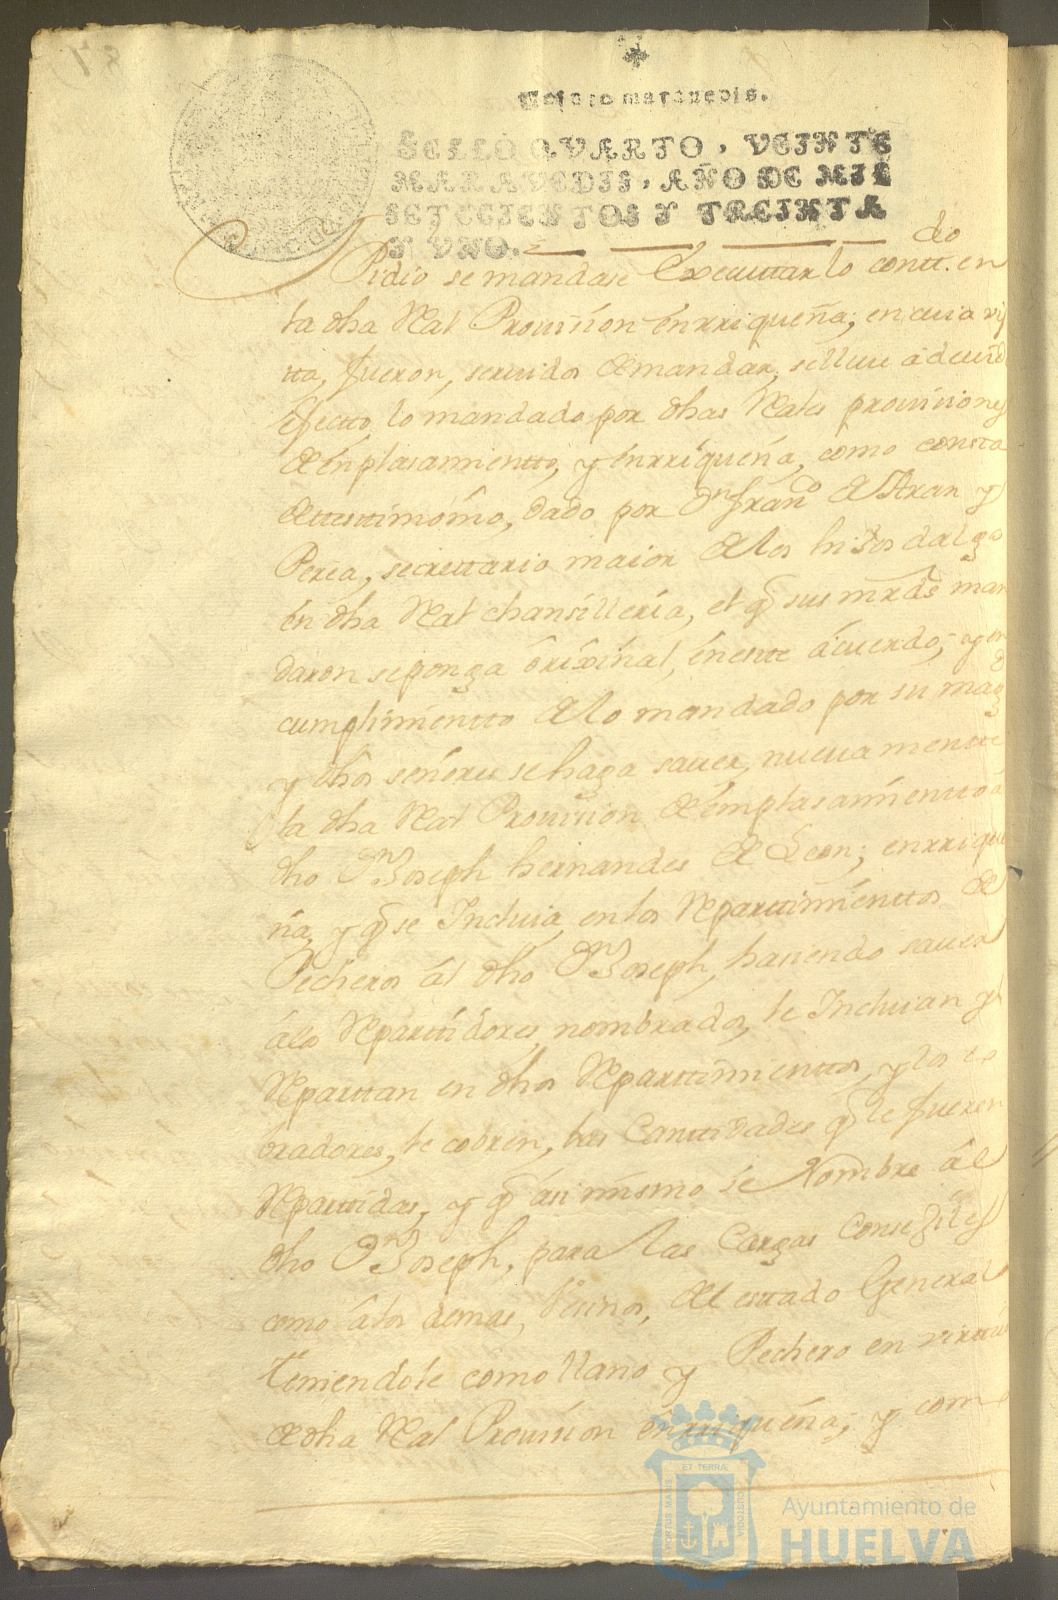 Veinte maravedis.
SELLO QVARTO, VEINTE
MARAVEDIS, AÑO DE MIL
SETECIENTOS Y TREINTA
Y VNO.
Pidio se mandase Executtar lo contt.do en
la dha Real Provission énrriqueña; en cuia vis
tta, fueron, servidos de mandar, se lleve á devido
efectto lo mandado por dhas Reales provisiones
de énplasamientto, y énrriqueña, como consta
de testtimonio, dado por Dn. Franco. de Aran y
Perea, secrettario maior de los hisos dalgo
én dha Real chansillería, el q se sus mrds man
daron se ponga órixinal, én este ácuerdo; y en
cumplimientto de lo mandado por su magd
y dhos señores se haga saver, nuevamentte
la dha Real Provission de émplasamientto á
dho Dn Joseph hernandes de Leon; enrrique
ña, y q se Incluia, en los Reparttimienttos de
Pecheros ál dho Dn Joseph, hasiendo saver
álos Reparttidores, nombrados, le Incluian y
Reparttan en dhos Reparttimienttos, y los co
bradores, le cobren, las Canttidades q le fueren
Reparttidas, y q ási mismo se Nombre ál
dho Dn Joseph, para las Cargas Consegiles
como álos demas, Vesinos, del esttado General
teniendole como llano y Pechero en virttud
de dha Real Provission énrriqueña; y como
VIRTUS MARIS ET TERRÆ CUSTODIA
Ayuntamiento de
HUELVA